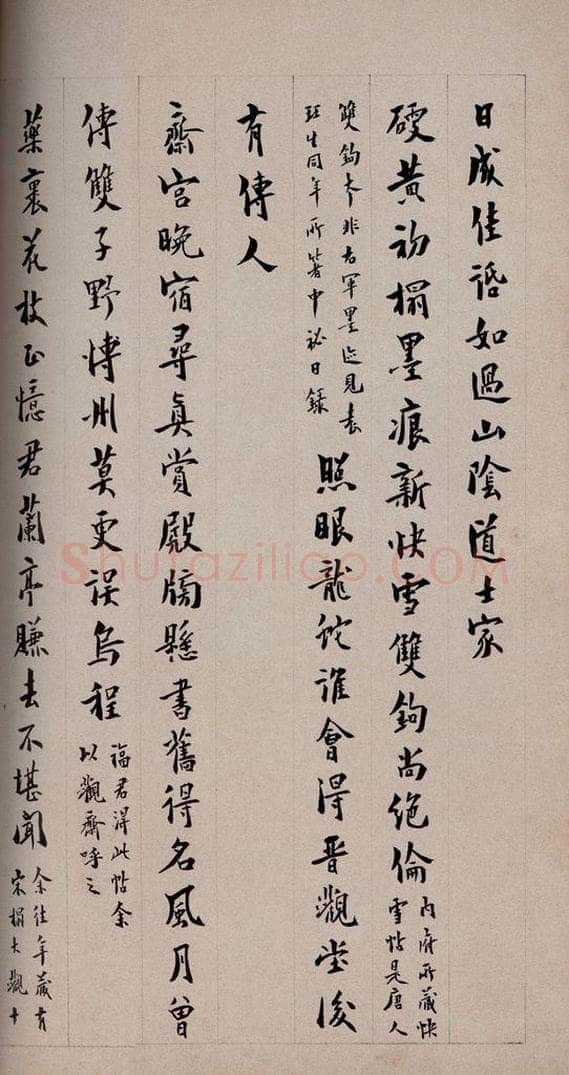 日成佳話如過山陰道士家
硬黃初搨墨痕新快雪雙鉤尚絕倫內府所藏快雪帖是唐人
雙鉤本非右軍墨迹見袁珏生同年所著中祕日錄照眼龍蛇誰會得晉觀堂後
有傳人
齋宮晚宿尋真賞殿牓懸書舊得名風月曾
傳雙子野博州莫更誤烏程福君得此帖余以觀齋呼之
藥裹花枝正憶君蘭亭賺去不堪聞余往年藏有宋搨大觀十
Shufaziliao.COM